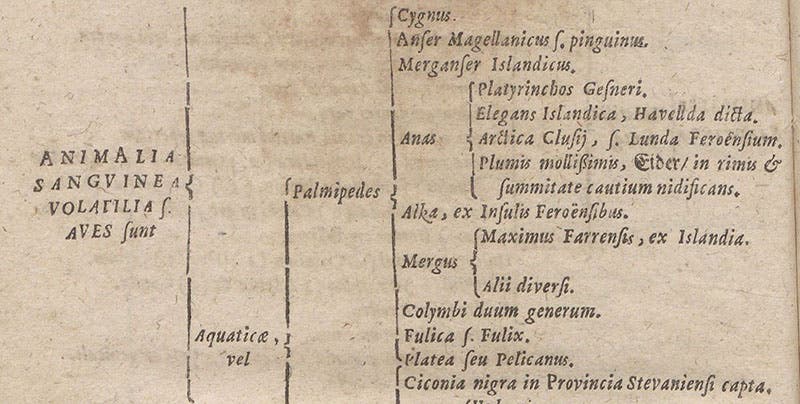 ANIMALIA
SANGVINEA
VOLATILIA ſ.
AVES ſunt
Aquaticæ,
vel
Palmipedes
Cygnus.
Anſer Magellanicus ſ. pinguinus.
Merganſer Islandicus.
Anas
Platyrinchos Geſneri.
Elegans Islandica, Havellda dicta.
Arctica Cluſij, ſ. Lunda Feroënſium.
Plumis molliſſimis, Eider/ in rimis &
ſummitate cautium nidificans.
Alka, ex Inſulis Feroënſibus.
Mergus
Maximus Farrenſis, ex Islandia.
Alii diverſi.
Colymbi duum generum.
Fulica ſ. Fulix.
Platea ſeu Pelicanus.
Ciconia nigra in Provincia Stevanienſi capta.